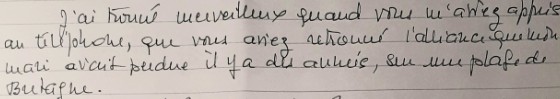 J'ai trouvé merveilleux quand vous m'aviez appris
au téléphone, que vous aviez retrouvé l'alliance que mon
mari avait perdue il y a des années, sur une plage de
Bretagne.